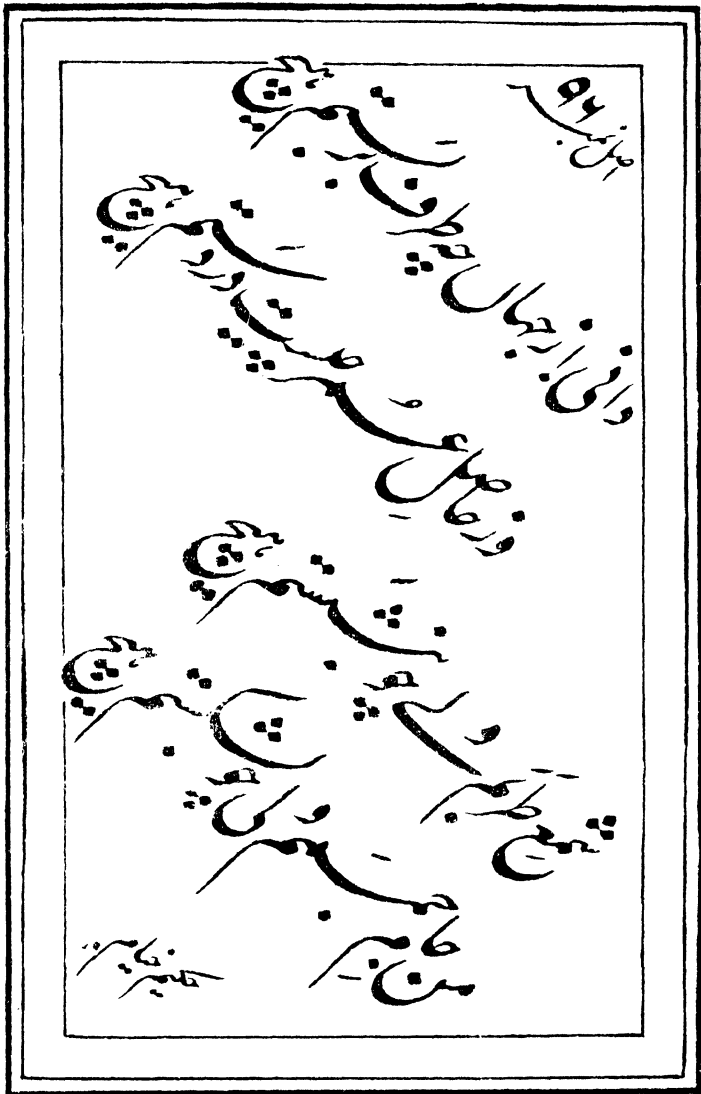 اصل نمبر ۵۶
دانی از جهان چه طرف بربستم هیچ
وز حاصل عمر چیست در دستم هیچ
شمع طربم ولی چو بنشستم هیچ
من جام جمم ولی چو بشکستم هیچ